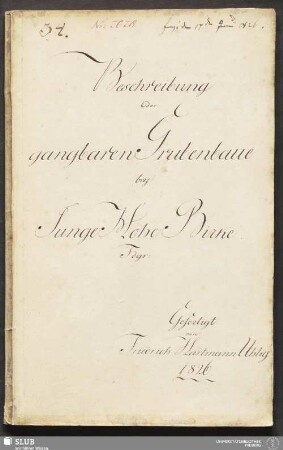 34.
Beschreibung
der
gangbaren Grubenbaue
bey
Junge Hohe Birke
Fdgr.
Gefertigt
von
Friedrich Hartmann
1826
SLUB
Wir führen Wissen.
UNIVERSITÄTSBIBLIOTHEK
FREIBERG